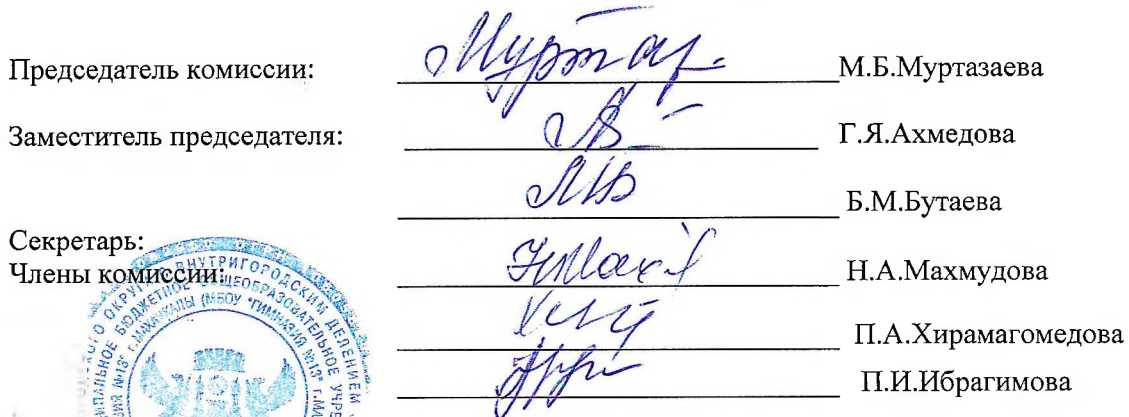 Председатель комиссии: М.Б.Муртазаева
Заместитель председателя: Г.Я.Ахмедова
Б.М.Бутаева
Секретарь:
Члены комиссии: Н.А.Махмудова
П.А.Хирамагомедова
П.И.Ибрагимова
ВНУТРИГОРОДСКИМ ДЕЛЕНИЕМ
БЮДЖЕТНОЕ ОБЩЕОБРАЗОВАТЕЛЬНОЕ
Г.МАХАЧКАЛЫ (МБОУ "ГИМНАЗИЯ №13"